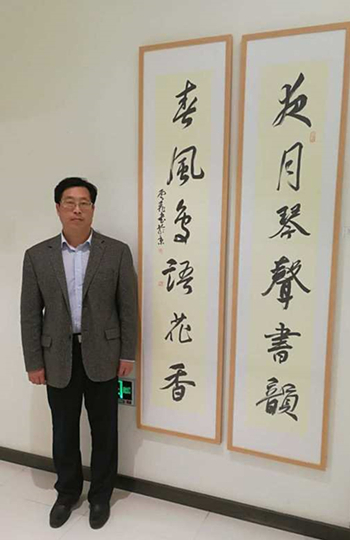 夜月琴聲書韻
春風鳥語花香